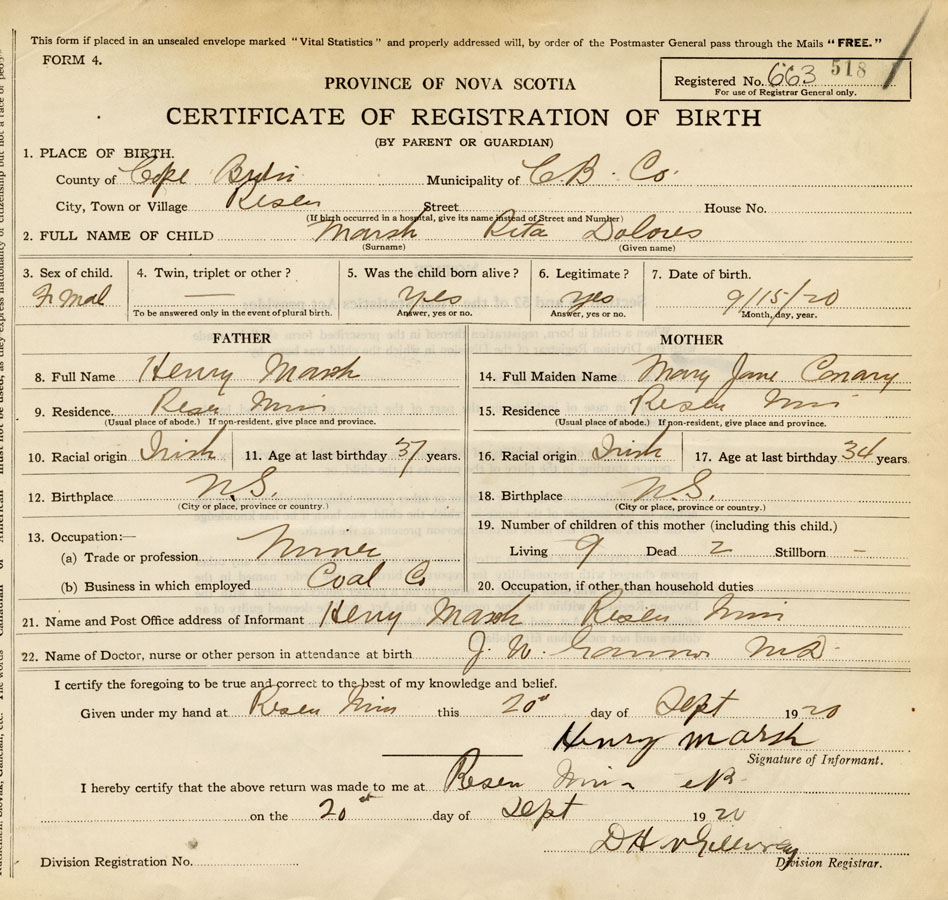 This form if placed in an unsealed envelope marked "Vital Statistics" and properly addressed will, by order of the Postmaster General pass through the Mails "FREE."
FORM 4.
Registered No. 663 518
For use of Registrar General only.
PROVINCE OF NOVA SCOTIA
CERTIFICATE OF REGISTRATION OF BIRTH
(BY PARENT OR GUARDIAN)
1. PLACE OF BIRTH.
County of Cape Municipality of C.B. Co.
City, Town or Village Reser Street House No.
(If birth occurred in a hospital, give its name instead of Street and Number)
2. FULL NAME OF CHILD Marsh Rita Dolores
(Surname) (Given name)
3. Sex of child. 4. Twin, triplet or other? 5. Was the child born alive? 6. Legitimate? 7. Date of birth.
F Mal — yes yes 9/15/20
To be answered only in the event of plural birth. Answer, yes or no. Answer, yes or no. Month, day, year.
FATHER MOTHER
8. Full Name Henry Marsh 14. Full Maiden Name Mary Jane Conary
9. Residence. Reser 15. Residence Reser
(Usual place of abode.) If non-resident, give place and province. (Usual place of abode.) If non-resident, give place and province.
10. Racial origin Irish 11. Age at last birthday 37 years. 16. Racial origin Irish 17. Age at last birthday 34 years.
12. Birthplace N.S. 18. Birthplace N.S.
(City or place, province or country.) (City or place, province or country.)
13. Occupation:— 19. Number of children of this mother (including this child.)
(a) Trade or profession Miner Living 9 Dead 2 Stillborn —
(b) Business in which employed Coal Co 20. Occupation, if other than household duties
21. Name and Post Office address of Informant Henry Marsh Reser
22. Name of Doctor, nurse or other person in attendance at birth J. W. M.D.
I certify the foregoing to be true and correct to the best of my knowledge and belief.
Given under my hand at Reser this 20 day of Sept 1920
Henry Marsh
Signature of Informant.
I hereby certify that the above return was made to me at Reser
on the 20 day of Sept 1920
D H
Division Registration No. Division Registrar.